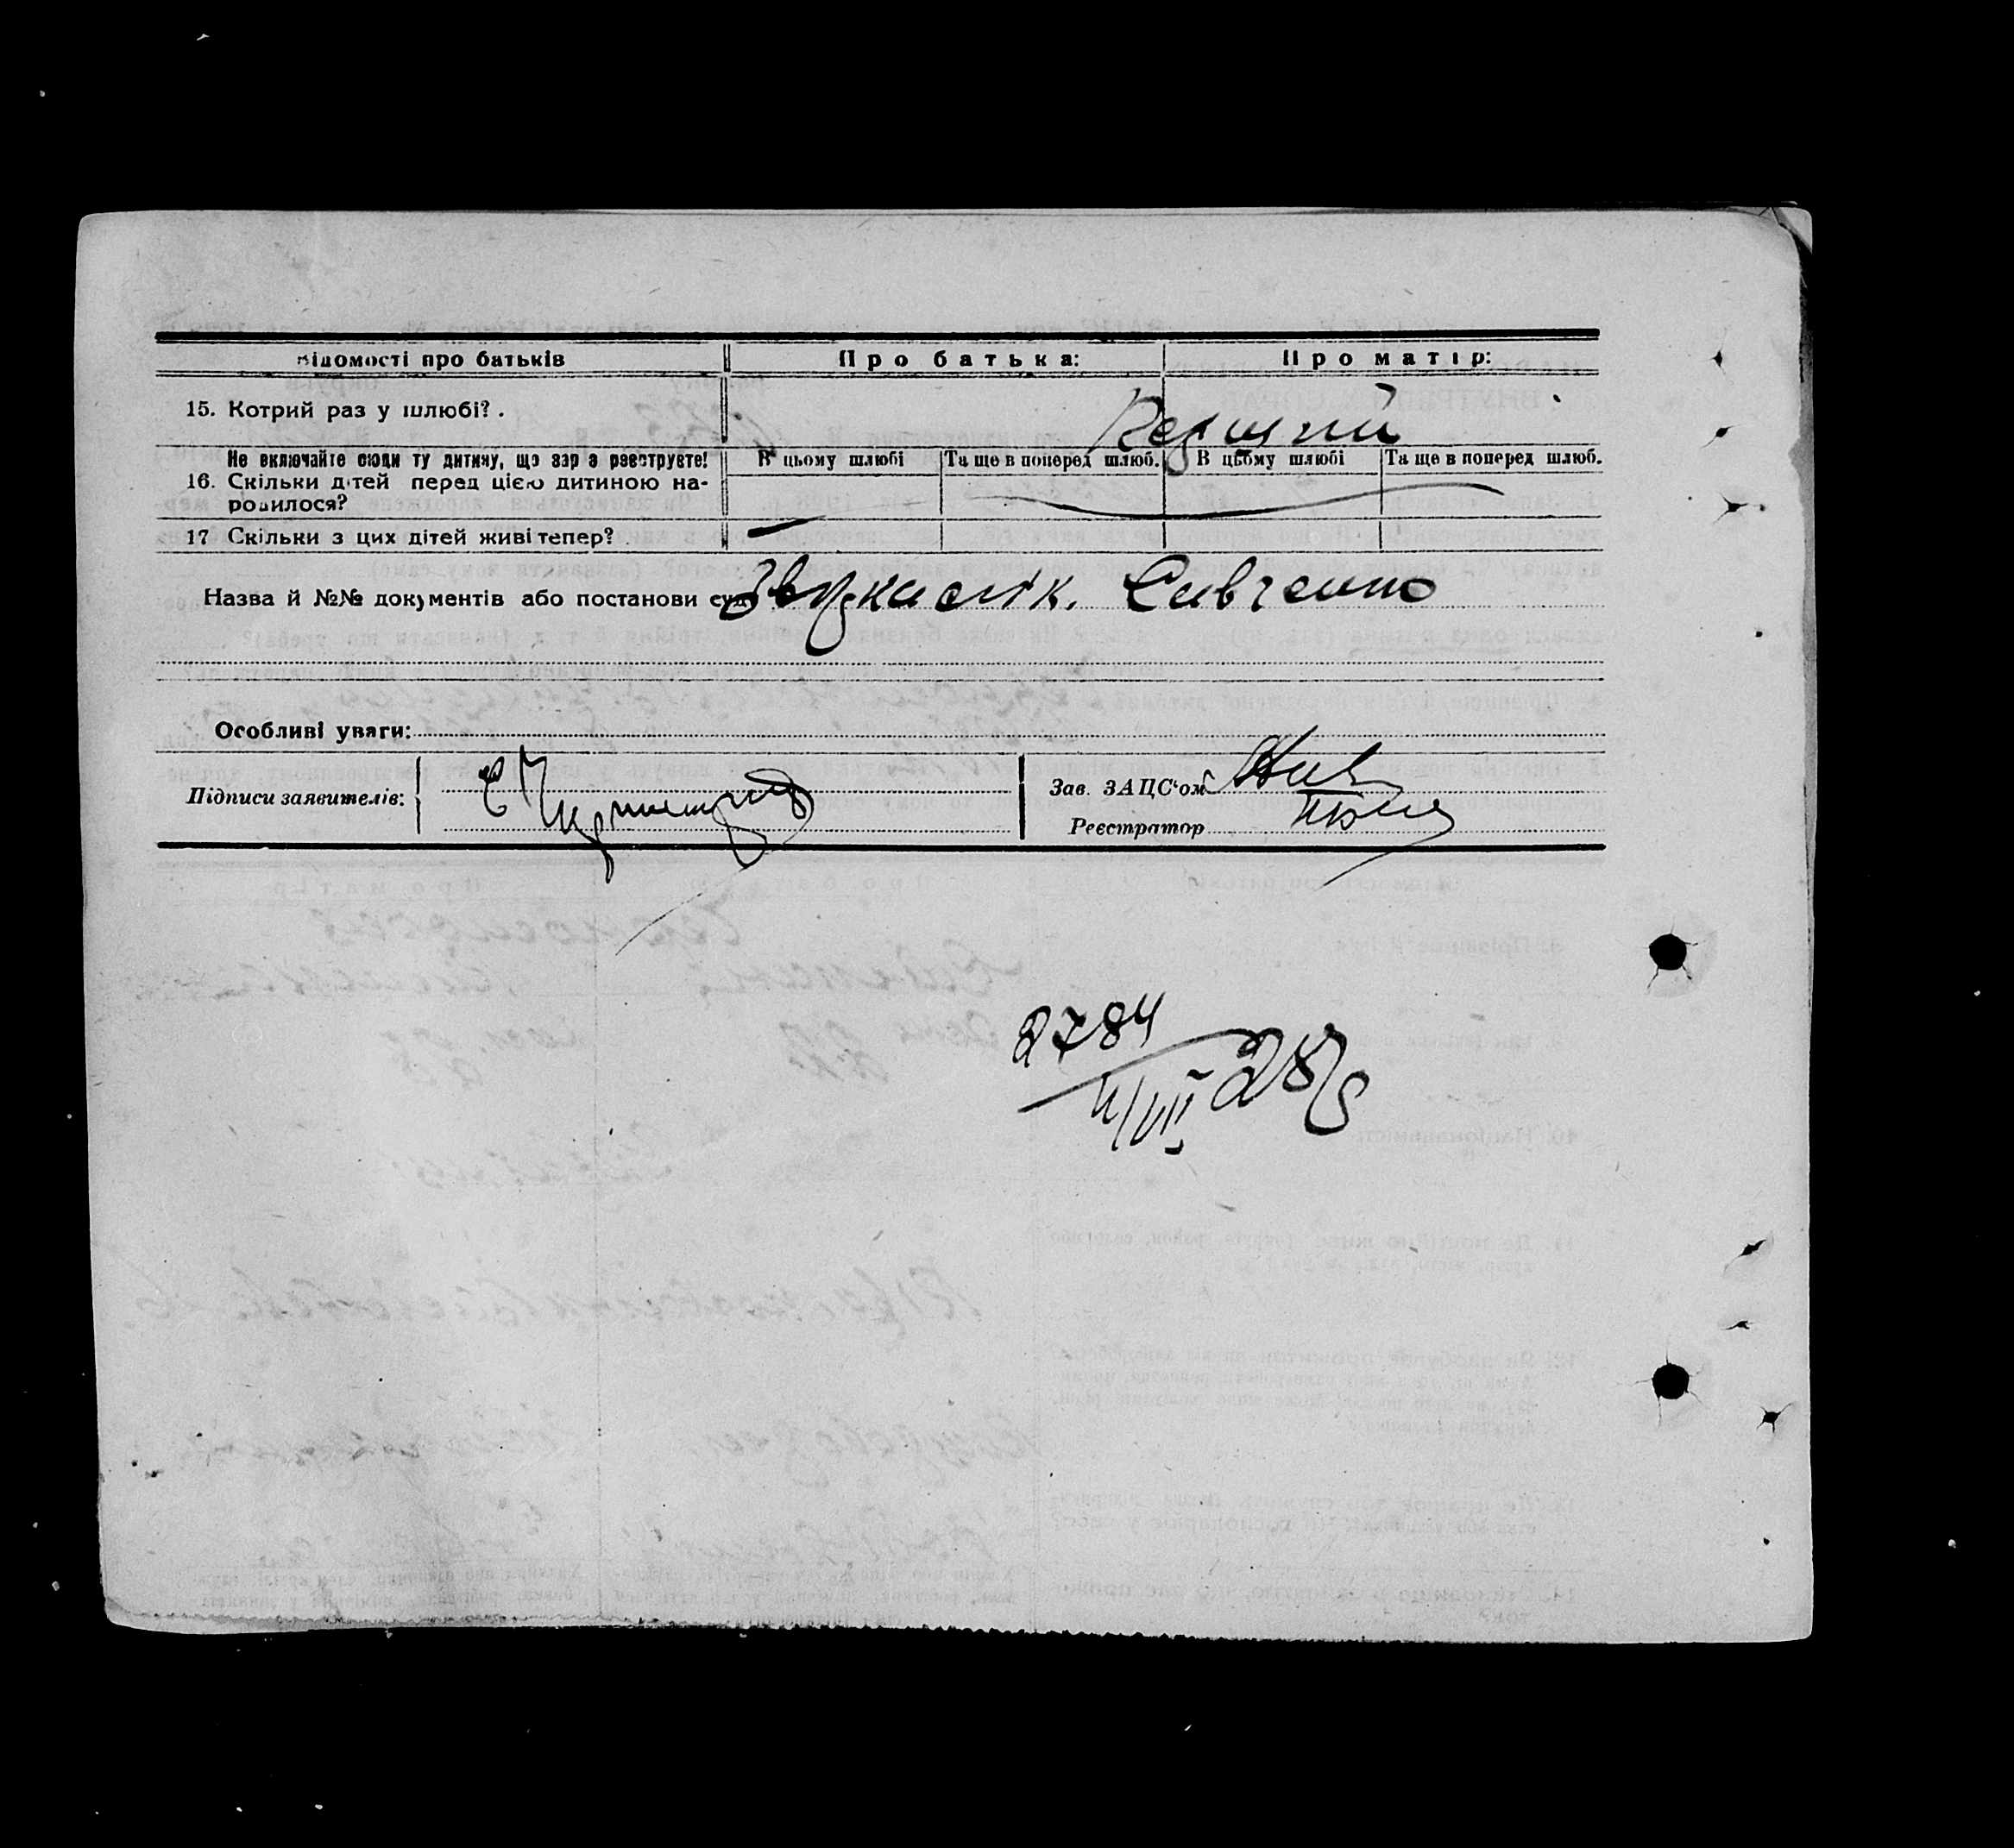 Відомості про батьків
Про батька:
Про матір:
15. Котрий раз у шлюбі?
Первший
Не включайте сюди ту дитину, що зараз реєструєте!
В цьому шлюбі
Та ще в поперед шлюб.
В цьому шлюбі
Та ще в поперед шлюб.
16. Скільки дітей перед цією дитиною на-
родилося?
17 Скільки з цих дітей живі тепер?
—
Назва й №№ документів або постанови суду
Савченко
Особливі уваги:
Підписи заявителів:
Зав. ЗАЦС'ом
Реєстратор
2784
28